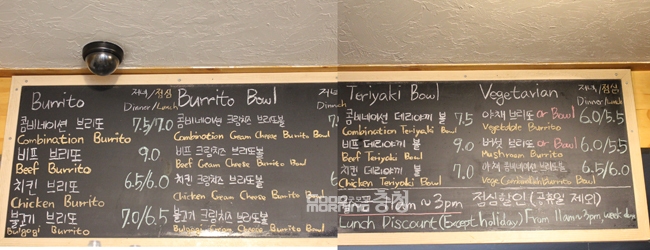 Burrito
저녁/점심
Dinner/Lunch
콤비네이션 브리또 7.5/7.0
Combination Burrito
비프 브리또 9.0
Beef Burrito
치킨 브리또 6.5/6.0
Chicken Burrito
불고기 브리또 7.0/6.5
Bulgogi Burrito
Burrito Bowl
콤비네이션 크림치즈 브리또볼
Combination Cream Cheese Burrito Bowl
비프 크림치즈 브리또볼
Beef Cream Cheese Burrito Bowl
치킨 크림치즈 브리또볼
Chicken Cream Cheese Burrito Bowl
불고기 크림치즈 브리또볼
Bulgogi Cream Cheese Burrito Bowl
Teriyaki Bowl
콤비네이션 데리야끼 볼 7.5
Combination Teriyaki Bowl
비프 데리야끼 볼 9.0
Beef Teriyaki Bowl
치킨 데리야끼 볼 7.0
Chicken Teriyaki Bowl
Vegetarian
저녁/점심
Dinner/Lunch
야채 브리또 or Bowl 6.0/5.5
Vegetable Burrito
버섯 브리또 or Bowl 6.0/5.5
Mushroom Burrito
야채 콤비네이션 브리또볼 6.5/6.0
Vege Combination Burrito Bowl
11am~3pm 점심할인 (공휴일 제외)
Lunch Discount (Except holiday) From 11am~3pm, weekdays
MORNING